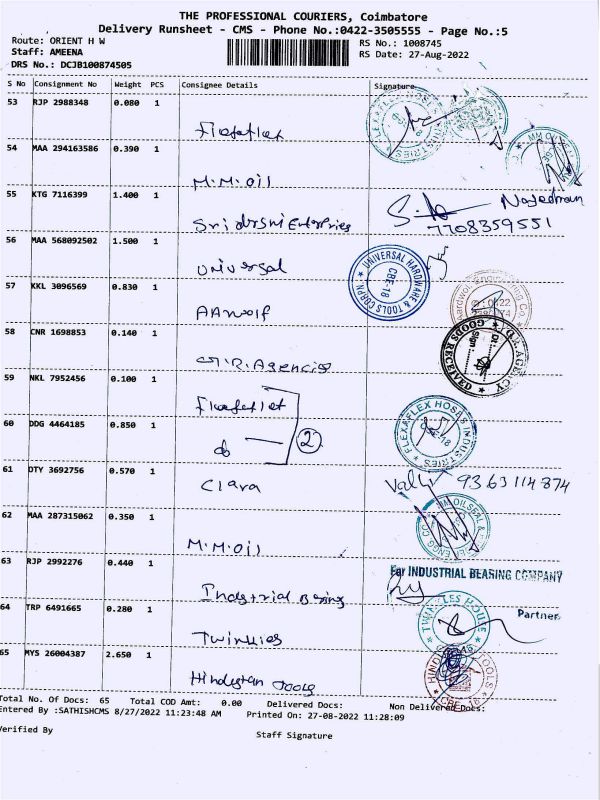 THE PROFESSIONAL COURIERS, Coimbatore
Delivery Runsheet - CMS - Phone No.:0422-3505555 - Page No.:5
Route: ORIENT H W
RS No.: 1008745
Staff: AMEENA
RS Date: 27-Aug-2022
DRS No.: DCJB100874505
S No Consignment No Weight PCS Consignee Details Signature
53 RJP 2988348 0.080 1
Flexaflex
54 MAA 294163586 0.390 1
M.M.oil
55 KTG 7116399 1.400 1
Sri
7708359551
56 MAA 568092502 1.500 1
universal
UNIVERSAL HARDWARE & TOOLS CORPN. CBE-18
57 KKL 3096569 0.830 1
58 CNR 1698853 0.140 1
Agencies
GOODS RECEIVED
Dt
Sign
59 NKL 7952456 0.100 1
Flexaflex
60 DDG 4464185 0.850 1
do — 2
FLEXAFLEX HOSES INDUSTRIES CBE-18
61 OTY 3692756 0.570 1
Clara
9363114874
62 MAA 287315062 0.350 1
M.M.oil
63 RJP 2992276 0.440 1
Industrial Bearing
For INDUSTRIAL BEARING COMPANY
Partner
64 TRP 6491665 0.280 1
Twinkles
TWINKLES HOUSE
65 MYS 26004387 2.650 1
Hindustan Tools
Total No. Of Docs: 65 Total COD Amt: 0.00 Delivered Docs: Non Delivered Docs:
Entered By :SATHISHCMS 8/27/2022 11:23:48 AM Printed On: 27-08-2022 11:28:09
Verified By
Staff Signature